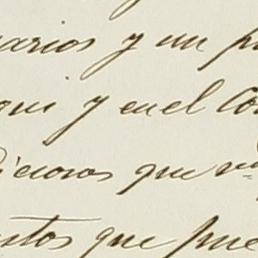 arios y un p
qui y en el Co
Dicioos que
stos que pue